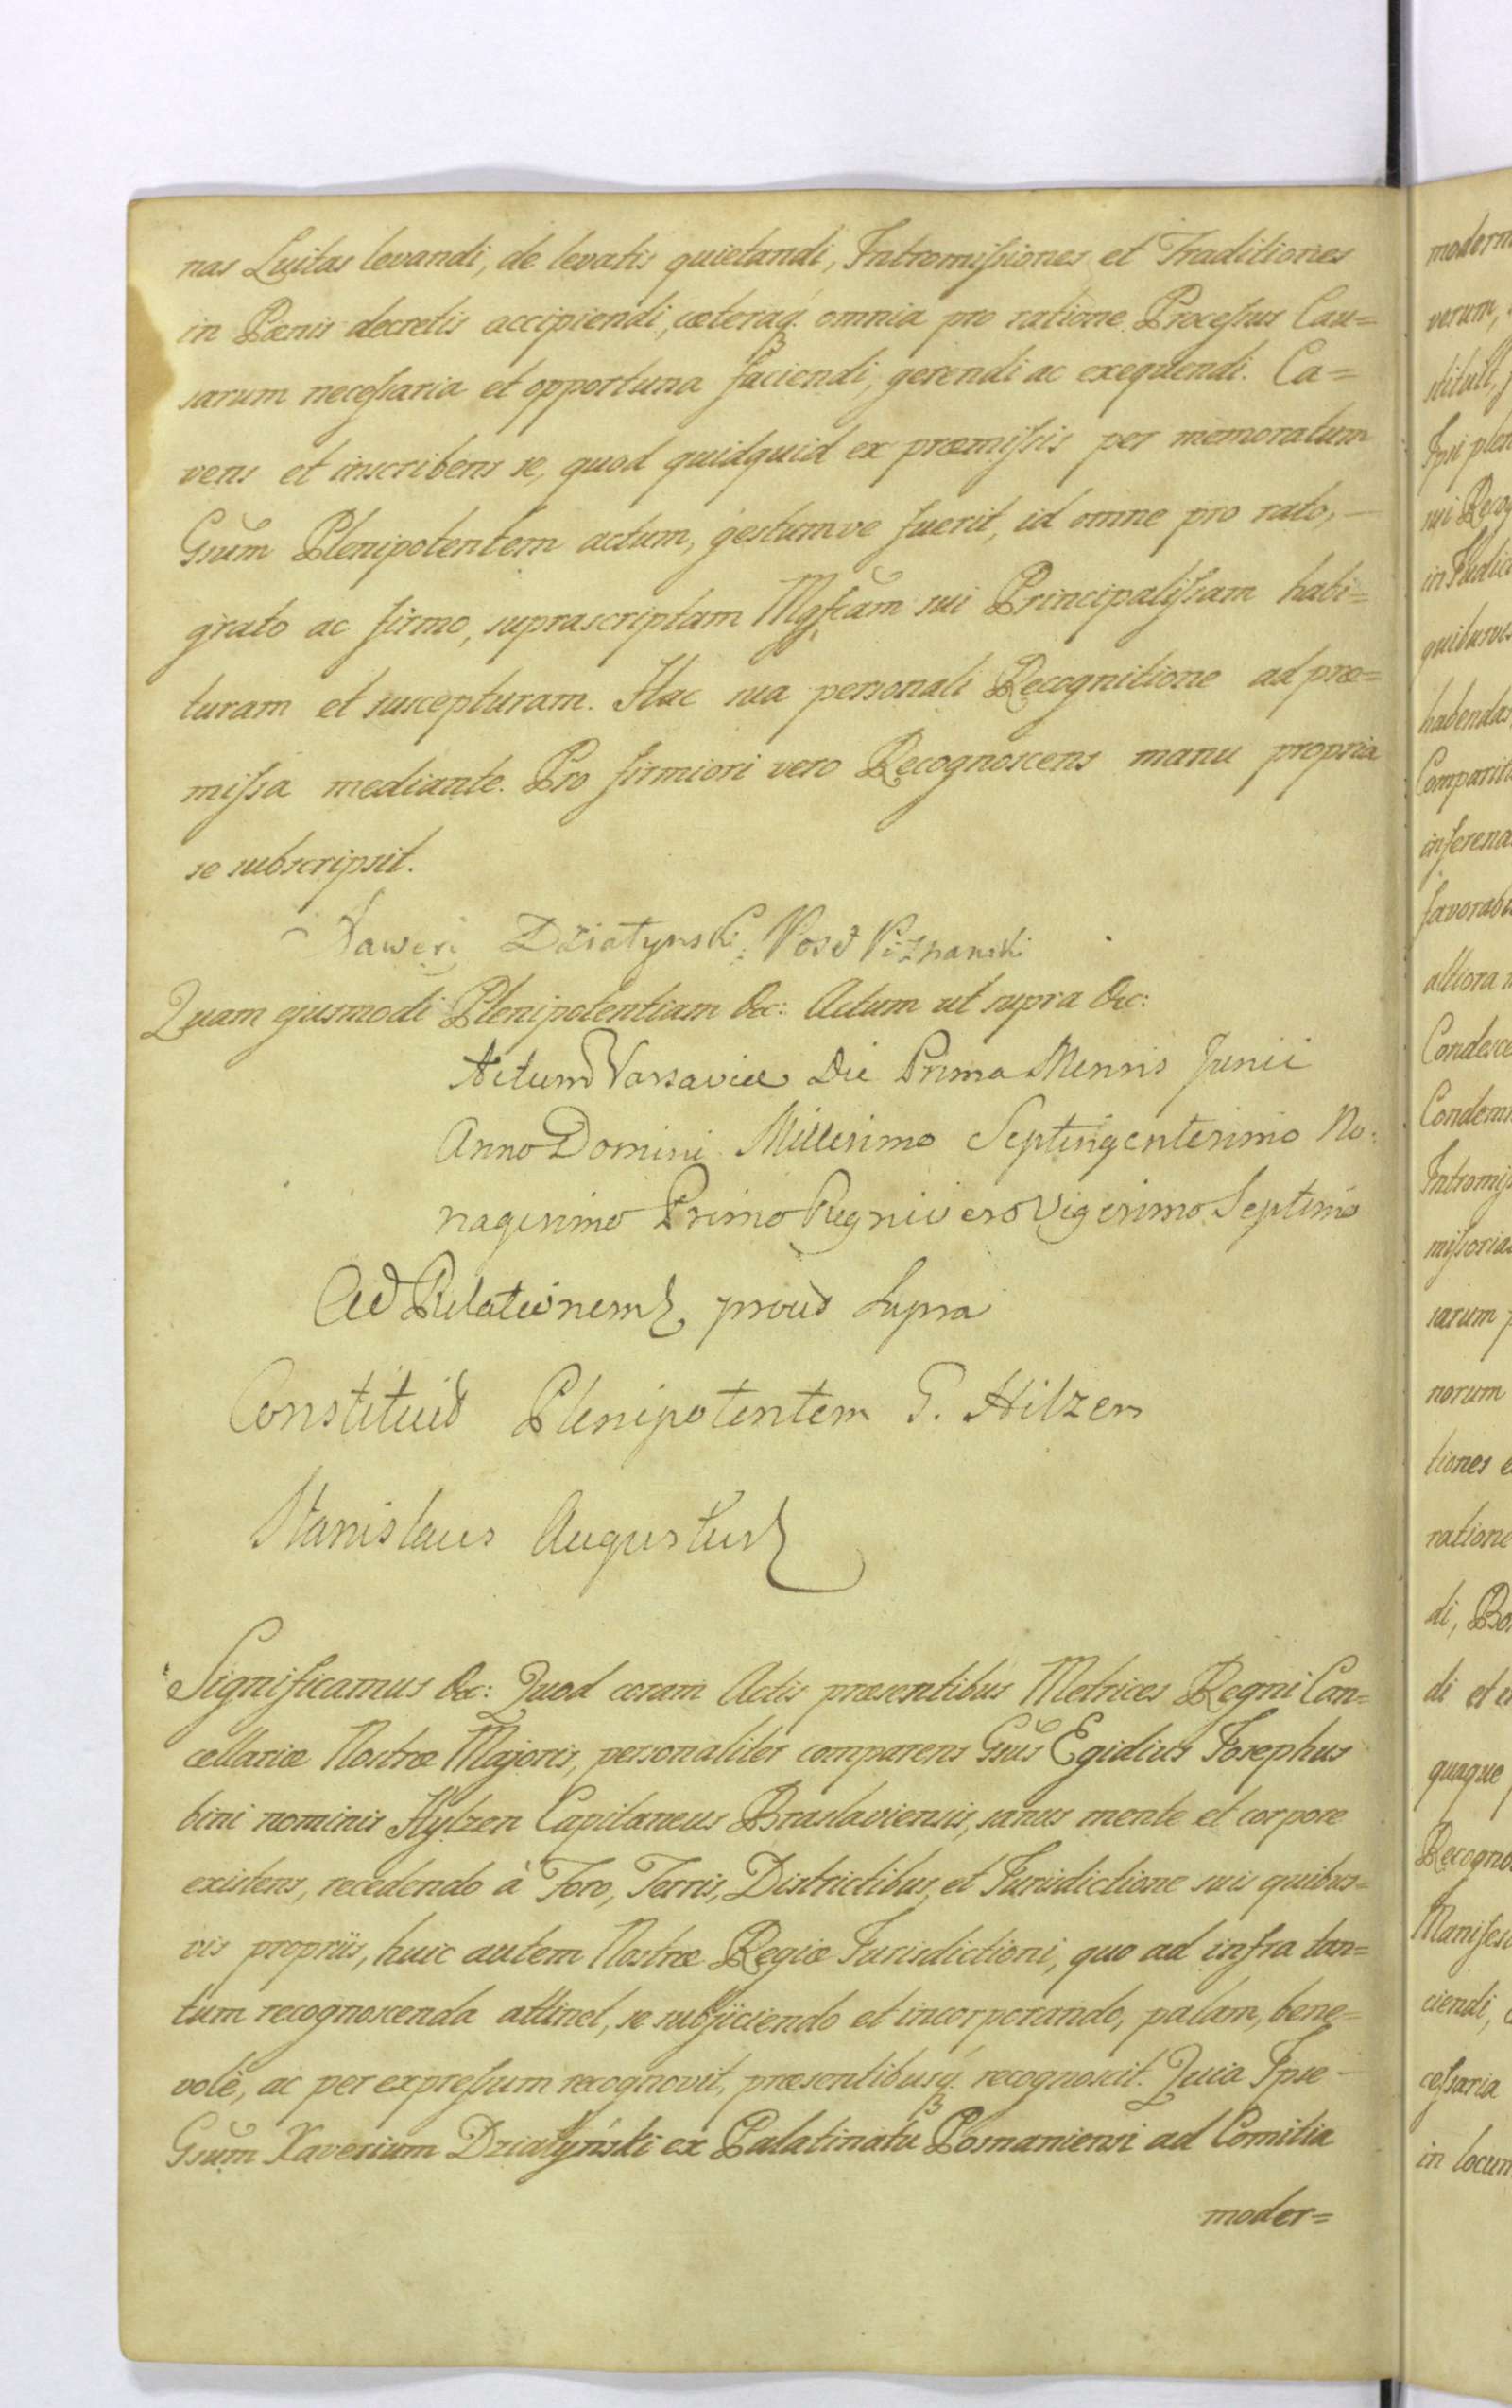 nas Luitas levandi, de levatis quietandi, Intromiſsiones et Traditiones
in Pœnis decretis accipiendi, cæteraq́ omnia pro ratione Proceſsus Cau=
sarum neceſsaria et opportuna faciendi, gerendi ac exequendi. Ca=
vens et inscribens se, quod quidquid ex præmiſsis per memoratum
Gsum Plenipotentem actum, gestumve fuerit, id omne pro rato, —
grato ac firmo, suprascriptam Mgfcam sui Principaliſsam habi=
turam et suscepturam. Hac sua personali Recognitione ad præ=
miſsa mediante. Pro firmiori vero Recognoscens manu propria
se subscripsit.
Xawery Działynski Poseł Poznanski
Quam ejusmodi Plenipotentiam &c: Actum ut supra &c:
Actum Varsaviæ Die Prima Mensis Junii
Anno Domini Millesimo Septingentesimo No:
nagesimo Primo Regni vero Vigesimo Septimo
Ad Relationem prout Supra
Constituit Plenipotentem G. Hilzen
Stanislaus Augustus
Significamus &c: Quod coram Actis præsentibus Metrices Regni Can=
cellariæ Nostræ Majoris, personaliter comparens Gsus Egidius Josephus
bini nominis Hylzen Capitaneus Braslaviensis, sanus mente et corpore
existens, recedendo à Foro, Terris, Districtibus, et Jurisdictione suis quibus=
vis propriis, huic autem Nostræ Regiæ Jurisdictioni, quo ad infra tan=
tum recognoscenda attinet, se subjiciendo et incorporando, palam, bene=
volè, ac per expreſsum recognovit, præsentibusq́ recognoscit. Quia Ipse —
Gsum Xaverium Działyński ex Palatinatu Posnaniensi ad Comitia
moder=